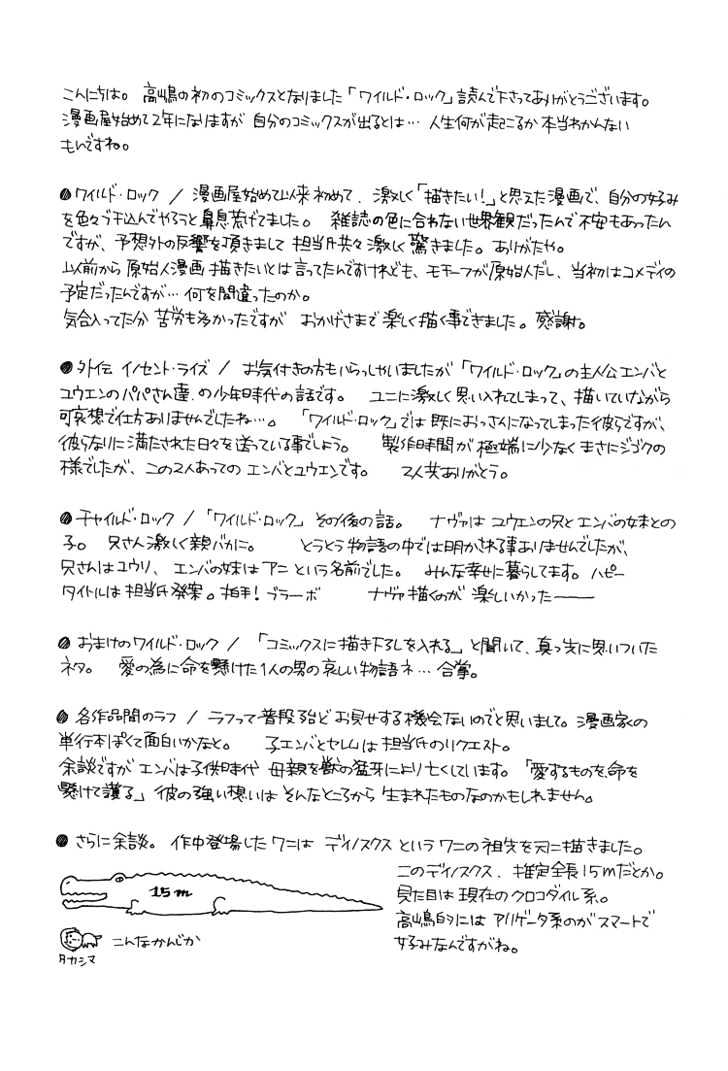 こんにちは。 高嶋の初のコミックスとなりました「ワイルド・ロック」読んで下さってありがとうございます。
漫画屋始めて2年になりますが 自分のコミックスが出るとは… 人生何が起こるか本当わかんない
もんですね。
●ワイルド・ロック / 漫画屋始めて以来初めて、激しく「描きたい!」と思えた漫画で、自分の好み
を色々ブチ込んでやろうと鼻息荒げてました。 雑誌の色に合わない世界観だったんで不安もあったん
ですが、予想外の反響を頂きまして 担当氏共々激しく驚きました。ありがたや。
以前から原始人漫画描きたいとは言ってたんですけれども、モチーフが原始人だし、当初はコメディの
予定だったんですが… 何を間違ったのか。
気合入ってた分 苦労も多かったですが おかげさまで楽しく描く事できました。感謝。
●外伝 イノセント・ライズ / お気付きの方もいらっしゃいましたが「ワイルド・ロック」の主人公エンバと
ユウエンのパパさん達の少年時代の話です。 ユニに激しく思い入れてしまって、描いていながら
可哀想で仕方ありませんでしたね…。 「ワイルド・ロック」では既におっさんになってしまった彼らですが、
彼らなりに満たされた日々を送っている事でしょう。 製作時間が極端に少なくまさにジゴクの
様でしたが、この2人あってのエンバとユウエンです。 2人共ありがとう。
●チャイルド・ロック / 「ワイルド・ロック」その後の話。 ナヴァはユウエンの兄とエンバの妹との
子。 兄さん激しく親バカに。 とうとう物語の中では明かされる事ありませんでしたが、
兄さんはユウリ、エンバの妹はアニという名前でした。 みんな幸せに暮らしてます。ハピー
タイトルは担当氏発案。拍手!ブラーボ ナヴァ描くのが楽しいかった――
●おまけのワイルド・ロック / 「コミックスに描き下ろしを入れる」と聞いて、真っ先に思いついた
ネタ。 愛の為に命を懸けた1人の男の哀しい物語ネ… 合掌。
●各作品間のラフ / ラフって普段殆どお見せする機会ないのでと思いまして。漫画家の
単行本ぽくて面白いかなと。 子エンバとセレムは担当氏のリクエスト。
余談ですが エンバは子供時代 母親を獣の猛牙により亡くしています。「愛するものを命を
懸けて護る」彼の強い想いは そんなところから生まれたものなのかもしれません。
●さらに余談。 作中登場したワニは ディノスクスというワニの祖先を元に描きました。
このディノスクス、推定全長15mだとか。
見た目は現在のクロコダイル系。
高嶋的には アリゲータ系のがスマートで
好みなんですがね。
15m
こんなかんじか
タカシマ